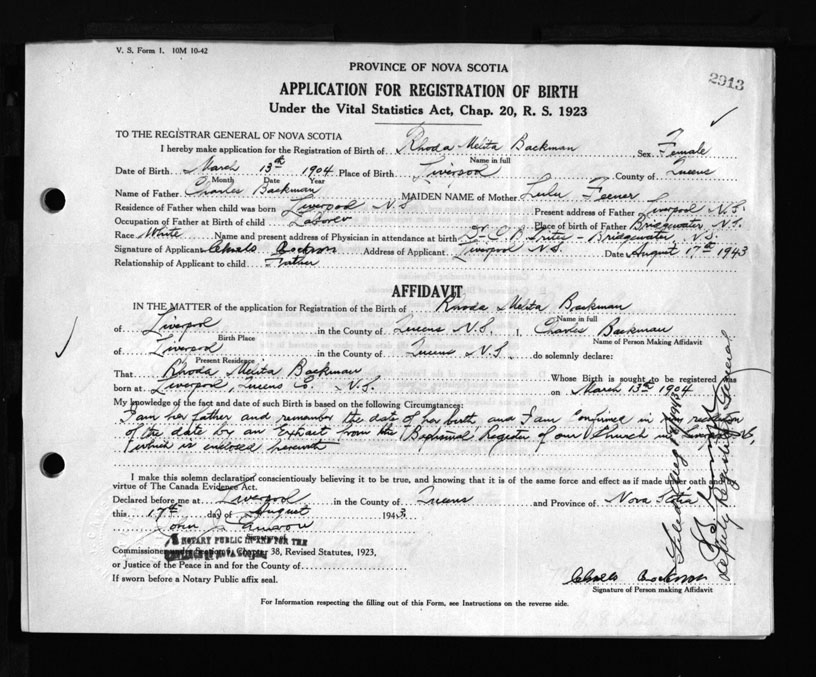 V. S. Form 1. 10M 10-42
2913
PROVINCE OF NOVA SCOTIA
APPLICATION FOR REGISTRATION OF BIRTH
Under the Vital Statistics Act, Chap. 20, R. S. 1923
TO THE REGISTRAR GENERAL OF NOVA SCOTIA
I hereby make application for the Registration of Birth of Rhoda Melita Backman Sex Female
Name in full
Date of Birth March 13th 1904 Place of Birth Liverpool County of Queens
Month Date Year
Name of Father Charles Backman MAIDEN NAME of Mother Lulu Feener
Residence of Father when child was born Liverpool N.S. Present address of Father Liverpool N.S.
Occupation of Father at Birth of child Laborer Place of birth of Father Bridgewater, N.S.
Race White Name and present address of Physician in attendance at birth Bridgewater, N.S.
Signature of Applicant Charles Backman Address of Applicant Liverpool N.S. Date August 17th 1943
Relationship of Applicant to child Father
AFFIDAVIT
IN THE MATTER of the application for Registration of the Birth of Rhoda Melita Backman
Name in full
of Liverpool in the County of Queens N.S. I, Charles Backman
Birth Place Name of Person Making Affidavit
of Liverpool in the County of Queens N.S. do solemnly declare:
Present Residence
That Rhoda Melita Backman Whose Birth is sought to be registered was
born at Liverpool, Queens Co. N.S. on March 13th 1904
My knowledge of the fact and date of such Birth is based on the following Circumstances:
I am her father and remember the date of her birth and I am confirmed in my
of the date by an Extract from the Baptismal Register of our Church in Liverpool N.S,
which is enclosed herewith
I make this solemn declaration conscientiously believing it to be true, and knowing that it is of the same force and effect as if made under oath and by
virtue of The Canada Evidence Act.
Declared before me at Liverpool in the County of Queens and Province of Nova Scotia
this 17th day of August 1943
A NOTARY PUBLIC IN AND FOR THE
PROVINCE OF NOVA SCOTIA
Commissioner under Section 9, Chapter 38, Revised Statutes, 1923,
or Justice of the Peace in and for County of
If sworn before a Notary Public affix seal.
Charles Backman
Signature of Person making Affidavit
For Information respecting the filling out of this Form, see Instructions on the reverse side.
Deputy Registrar General